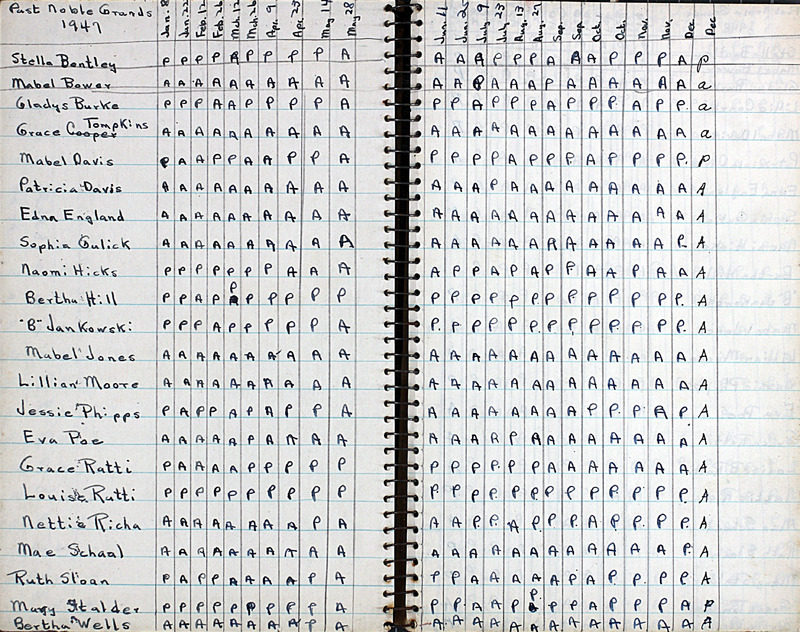 Past Noble Grands Jan. 8 Jan. 22 Feb. 12 Feb. 26 Mch. 12 Mch. 26 Apr. 9 Apr. 23 May 14 May 28 Jun. 11 Jun. 25 July 9 July 23 Aug. 13 Aug. 27 Sep. Sep. Oct. Oct. Nov. Nov. Dec Dec
1947
Stella Bentley P P P P A P P P P A A A A P P P A A A P P P A P
Mabel Bower A A A A A A A A A A A A P A A A P A A A A A A a
Gladys Burke P P P A A P P P P A P P A P P P A P P P. A P P. a
Tompkins
Grace Cooper A A A A A A A A A A A A A A A A A A A A A A A a
Mabel Davis P A A P P A A P P A P P P P A P P P A P P P P. P
Patricia Davis A A A A A A A A A A A A A P A A A A A A A A A A
Edna England A A A A A A A A A A A A A A A A A A A A A A A A
Sophia Gulick A A A A A A A A A A A A A A A A A A A A A A P. A
Naomi Hicks P P P P P P P A A A A P P A P A P P A A P A A A
P
Bertha Hill P P A P P P P P P P P P P P P P P P P P P P. A
"B" Jankowski P P P A P P P P P A P. P P P P P. P P P P P P P. A
Mabel Jones A A A A A A A A A A A A A A A A A A A A A A A A
Lillian Moore A A A A A A A A A A A A A A A A A A A A A A A A
Jessie Phipps P A P P A P A P P A A A A A A A A A P P. P. A P A
Eva Poe A A A A A A A A A A A A A R P A A A A A A A A A
Grace Ratti P A A A A P P P P P P P P P. P P A A A A A A A A
Louise Ratti P P P P P P P P P P P P P. P P P P P P P P P P. A
Nettie Richa A A A A A A A A P A A A P P. A P. P P. A P P. P P. A
Mae Schaal A A A A A A A A A A A A A A A A A A A A A A P. A
Ruth Sloan P A P P A A A A P A P P A A A A A P A P P. P P A
P.
Mary Stalder P P P P P P P P P A P P. A A P P P A P P P A P
Bertha Wells A A A A A A A P A A A. A A A A A A A A A A A A A